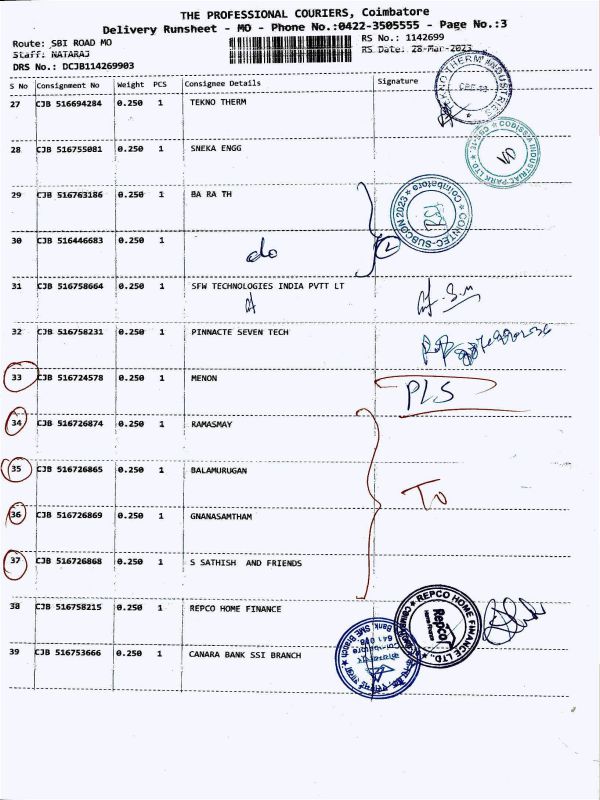 THE PROFESSIONAL COURIERS, Coimbatore
Delivery Runsheet - MO - Phone No.:0422-3505555 - Page No.:3
Route: SBI ROAD MO RS No.: 1142699
Staff: NATARAJ RS Date: 28-Mar-2023
DRS No.: DCJB114269903
S No Consignment No Weight PCS Consignee Details Signature
27 CJB 516694284 0.250 1 TEKNO THERM
28 CJB 516755081 0.250 1 SNEKA ENGG
29 CJB 516763186 0.250 1 BA RA TH
30 CJB 516446683 0.250 1 do
31 CJB 516758664 0.250 1 SFW TECHNOLOGIES INDIA PVTT LT
32 CJB 516758231 0.250 1 PINNACTE SEVEN TECH
33 CJB 516724578 0.250 1 MENON PLS
34 CJB 516726874 0.250 1 RAMASMAY
35 CJB 516726865 0.250 1 BALAMURUGAN
To
36 CJB 516726869 0.250 1 GNANASAMTHAM
37 CJB 516726868 0.250 1 S SATHISH AND FRIENDS
38 CJB 516758215 0.250 1 REPCO HOME FINANCE
39 CJB 516753666 0.250 1 CANARA BANK SSI BRANCH
CODISSIA INDUSTRIAL PARK LTD.
CONTEC-SUBCON 2023
Coimbatore
REPCO HOME FINANCE LTD.
Repco
Home Finance